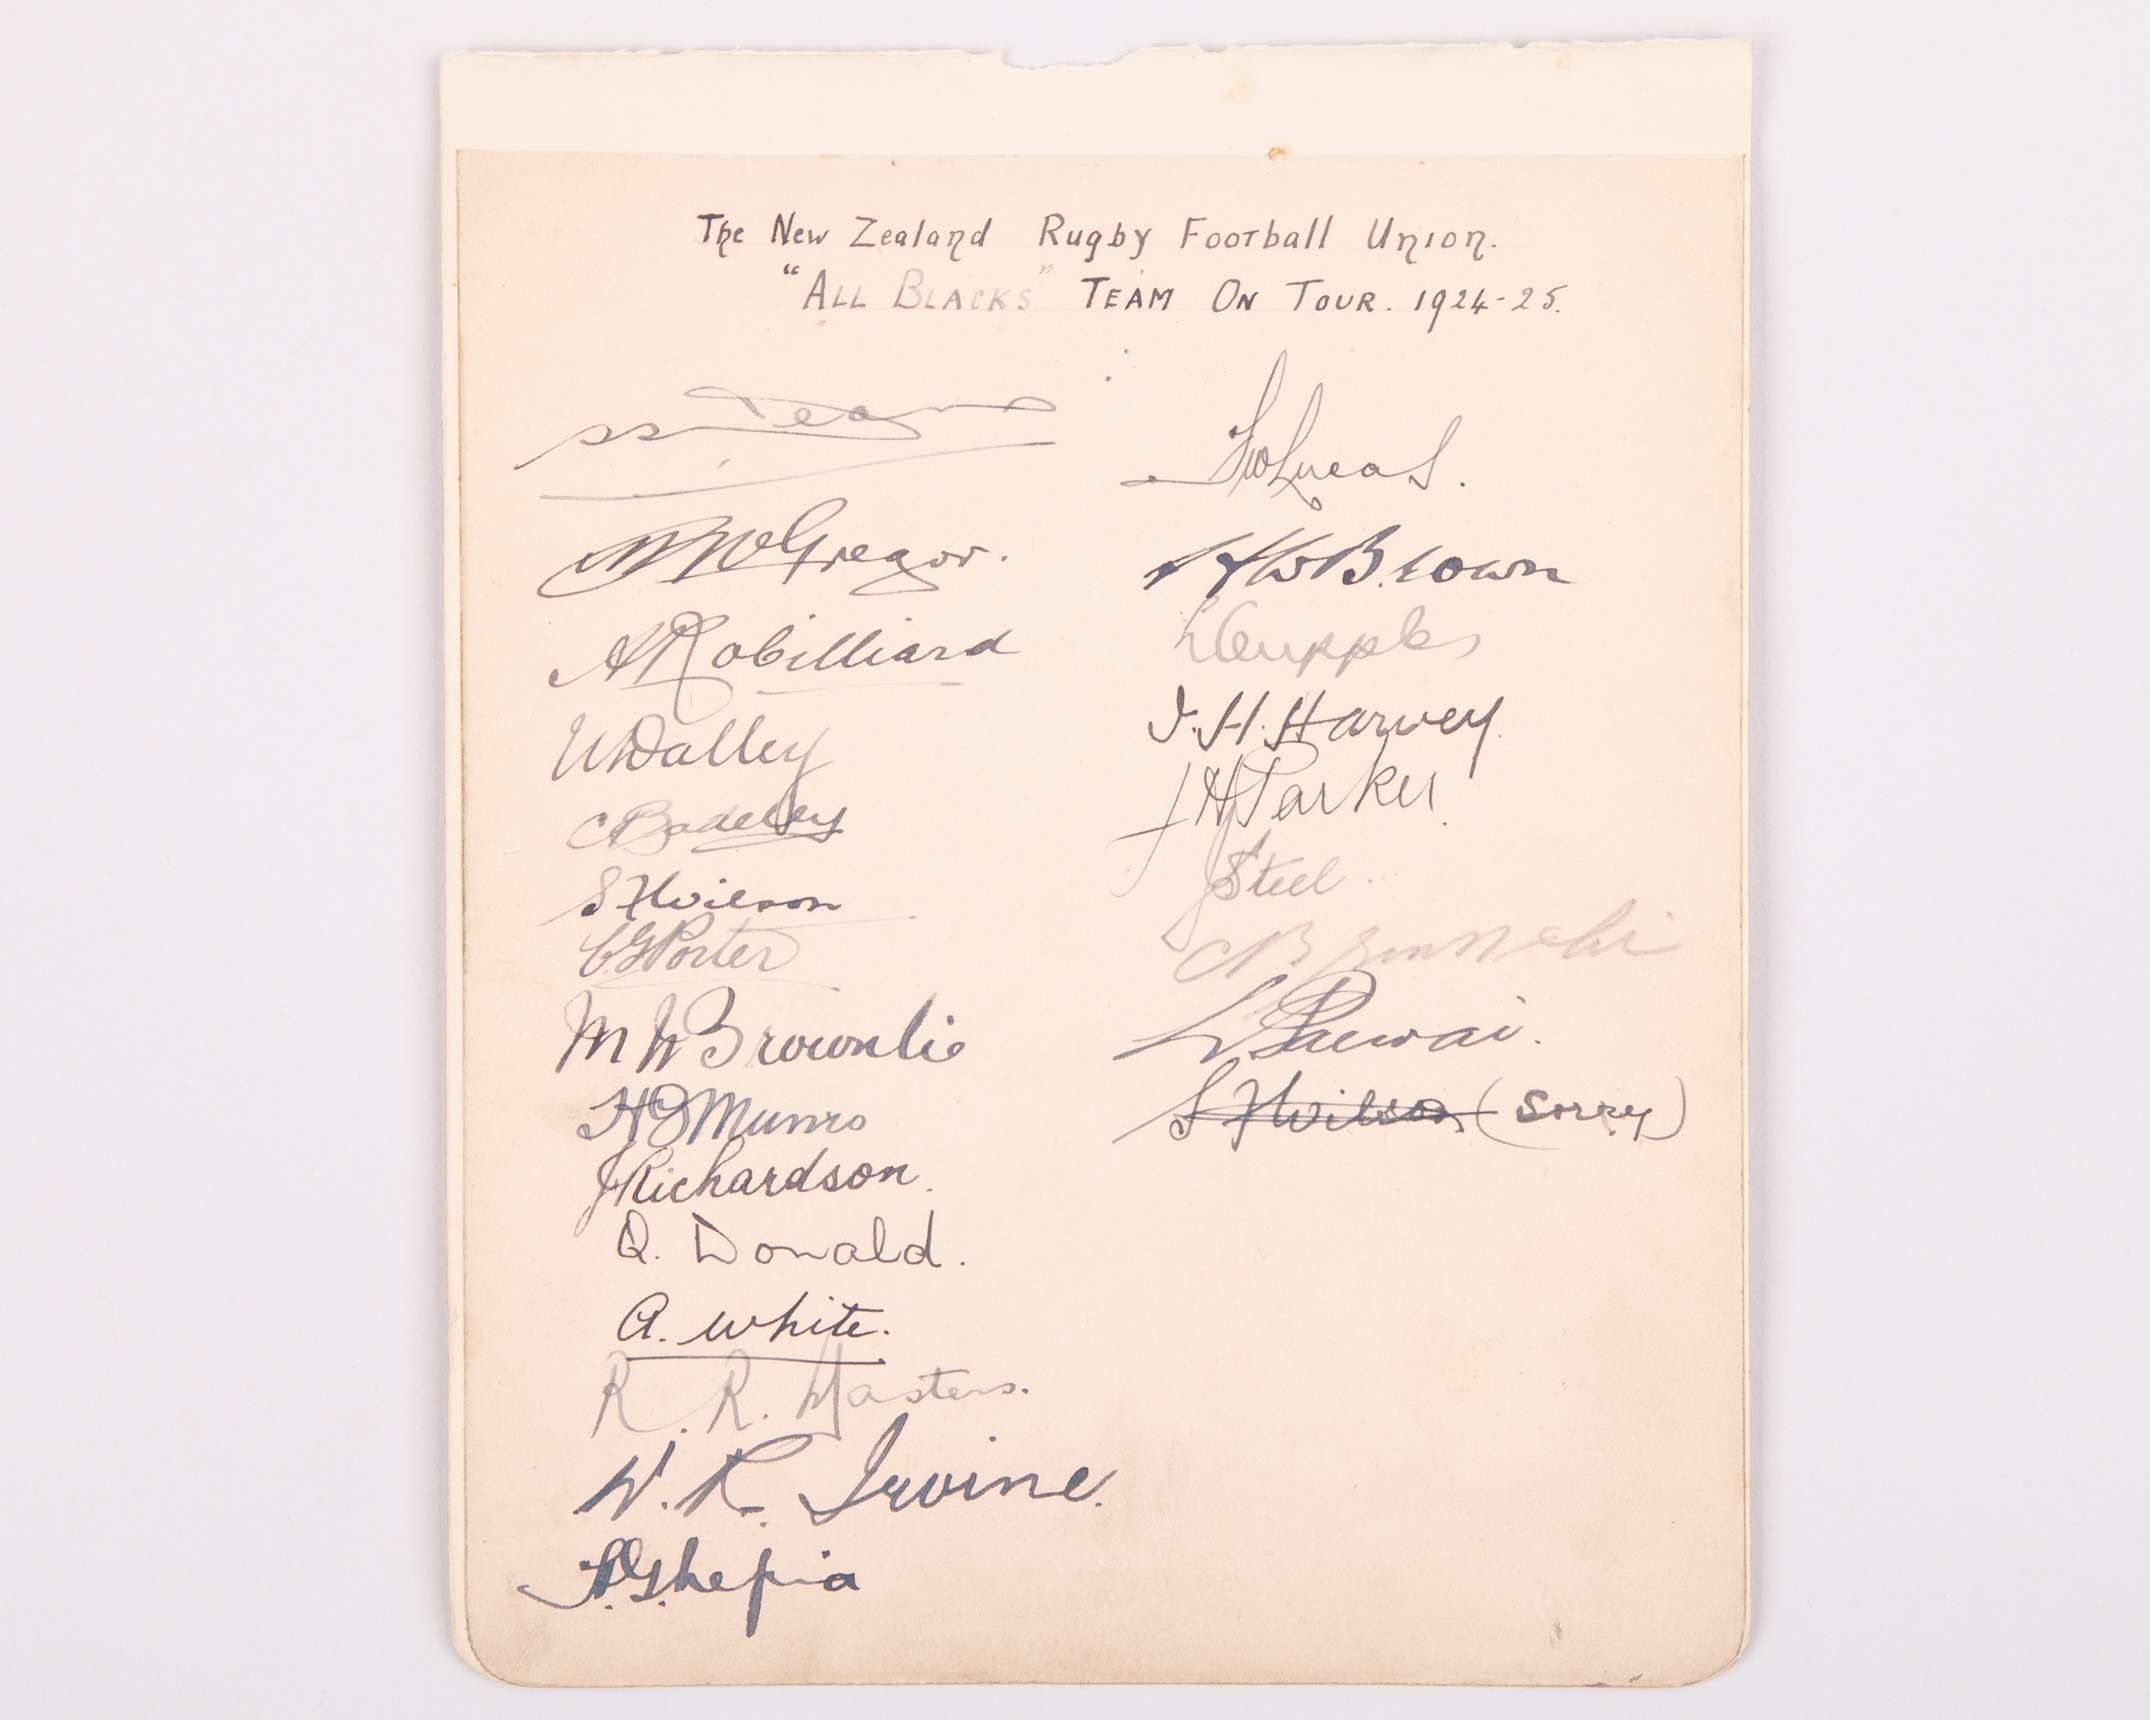 The New Zealand Rugby Football Union.
"ALL BLACKS" TEAM ON TOUR. 1924-25.
SS Dean
N McGregor.
A Robilliard
W Dalley
C Badeley
S F Wilson
C G Porter
M J Brownlie
H G Munro
J Richardson.
Q. Donald.
A. White.
R. R. Masters.
W. R. Irvine.
F W Lucas.
H W Brown
L Cupples
I. H. Harvey.
J H Parker.
J Steel
L. Paewai.
S F Wilson (Sorry)